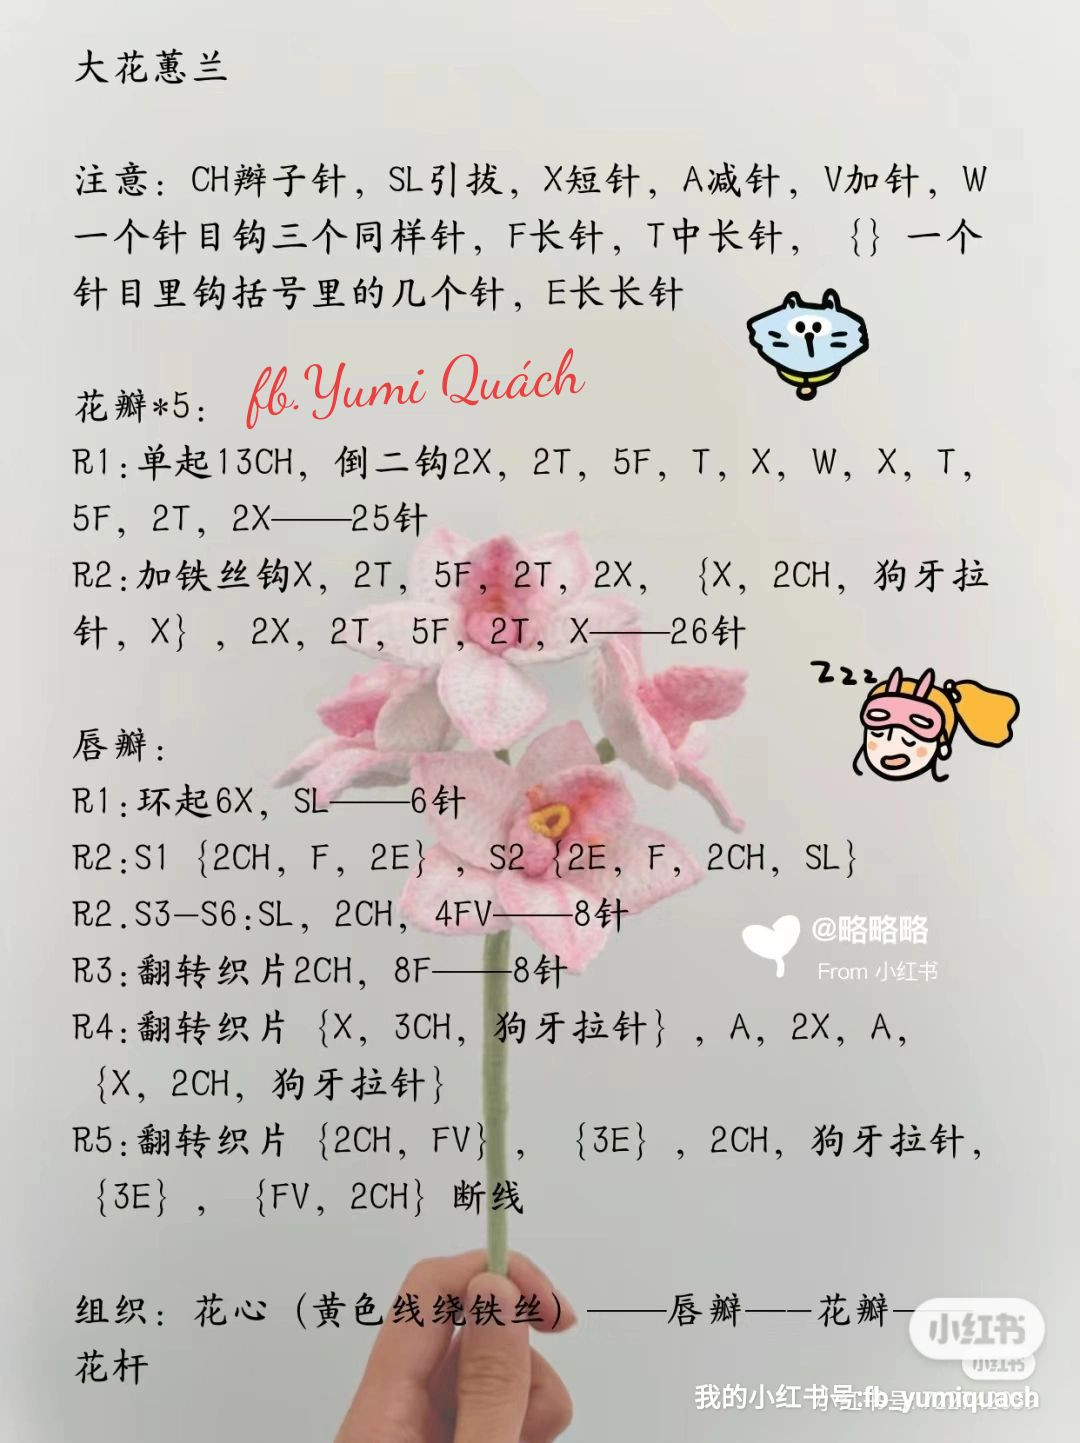 大花蕙兰
注意：CH辫子针，SL引拔，X短针，A减针，V加针，W
一个针目钩三个同样针，F长针，T中长针，｛｝一个
针目里钩括号里的几个针，E长长针
fb.Yumi Quách
花瓣*5：
R1:单起13CH，倒二钩2X，2T，5F，T，X，W，X，T，
5F，2T，2X——25针
R2:加铁丝钩X，2T，5F，2T，2X，｛X，2CH，狗牙拉
针，X｝，2X，2T，5F，2T，X——26针
zzz
唇瓣：
R1:环起6X，SL——6针
R2:S1｛2CH，F，2E｝，S2｛2E，F，2CH，SL｝
R2.S3—S6:SL，2CH，4FV——8针
@略略略
From 小红书
R3:翻转织片2CH，8F——8针
R4:翻转织片｛X，3CH，狗牙拉针｝，A，2X，A，
｛X，2CH，狗牙拉针｝
R5:翻转织片｛2CH，FV｝，｛3E｝，2CH，狗牙拉针，
｛3E｝，｛FV，2CH｝断线
组织：花心（黄色线绕铁丝）——唇瓣——花瓣——
花杆
小红书
小红书
我的小红书号:fb_yumiquach